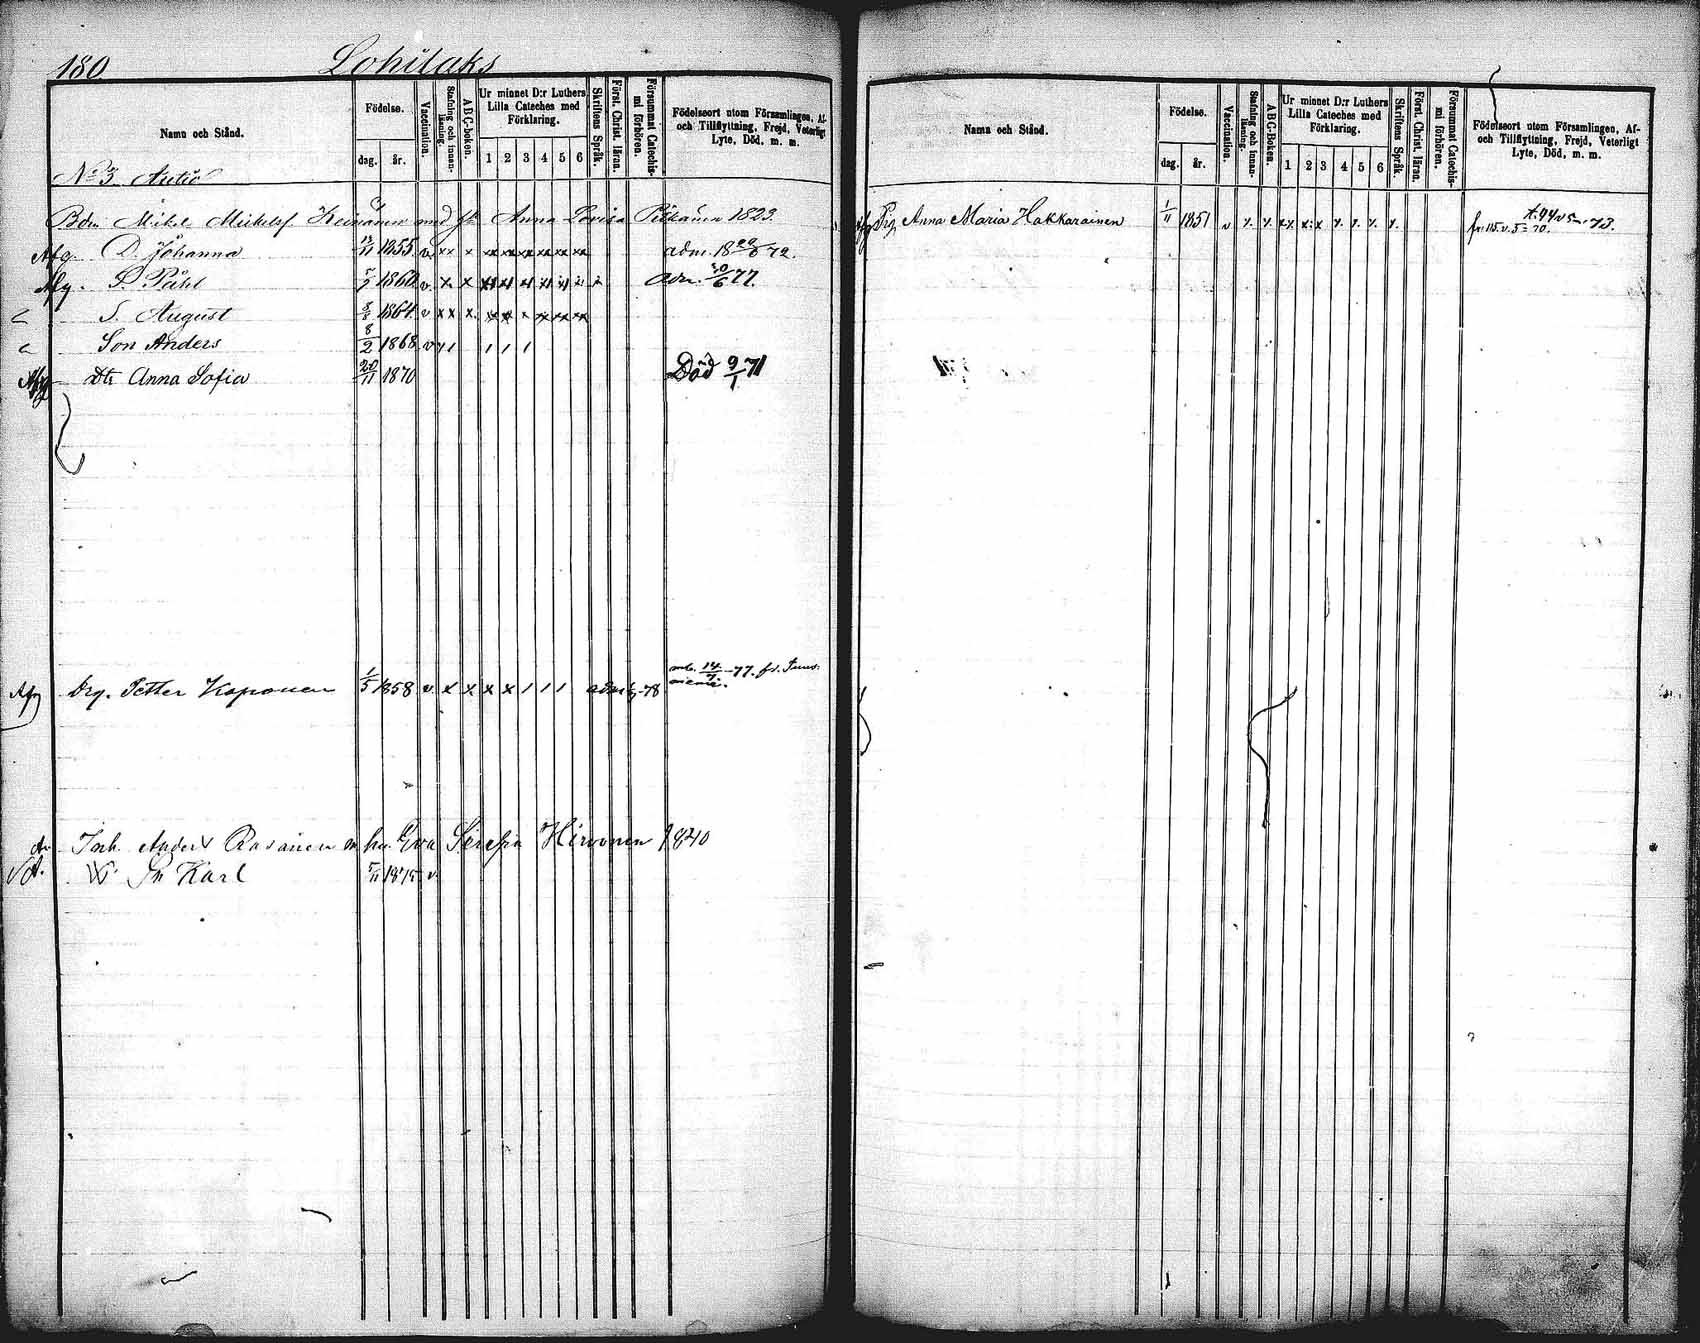 180 Lohilaks
Namn och Stånd.
Födelse.
dag. år.
Vaccination.
Stafning och innan-läsning.
ABC-boken.
Ur minnet D:r Luthers Lilla Cateches med Förklaring.
1 2 3 4 5 6
Skriftens Språk.
Först. Christ. läran.
Försummat Catechis-mi förhören.
Födelseort utom Församlingen, Af- och Tillflyttning, Frejd, Veterligt Lyte, Död, m. m.
No 3 Autio
Bdn Mikel Mickelsf. Keinänen med h. Anna Lovisa Pitkänen 1823.
Afg. D. Johanna 12/11 1855 v xx x x x x x x x adm. 18 22/6 72.
Afg. S. Påhl 5/2 1860 v. x x x x x x x x adm. 30/6 77.
S. August 1864 v x x x x x x x x x
Son Anders 8/2 1868 v x 1 1 1 1
Afg Dtr Anna Sofia 20/11 1870 Död 9/1 71
Afg Drg. Petter Koponen 1/5 1858 v. x x x x 1 1 1 adm -78 14/7 -77. fr.
Inh. Anders Rasainen m hu. Eva Hirvonen 1840
Sn Karl 5/11 1875 v.
Namn och Stånd.
Födelse.
dag. år.
Vaccination.
Stafning och innan-läsning.
ABC-boken.
Ur minnet D:r Luthers Lilla Cateches med Förklaring.
1 2 3 4 5 6
Skriftens Språk.
Först. Christ. läran.
Försummat Catechis-mi förhören.
Födelseort utom Församlingen, Af- och Tillflyttning, Frejd, Veterligt Lyte, Död, m. m.
Afg Pig Anna Maria Hakkarainen 1/11 1851 v x. x. x x x x x. x. x. x. t. 94 v 5 -73.
fr. 115. v. 5 = 70.